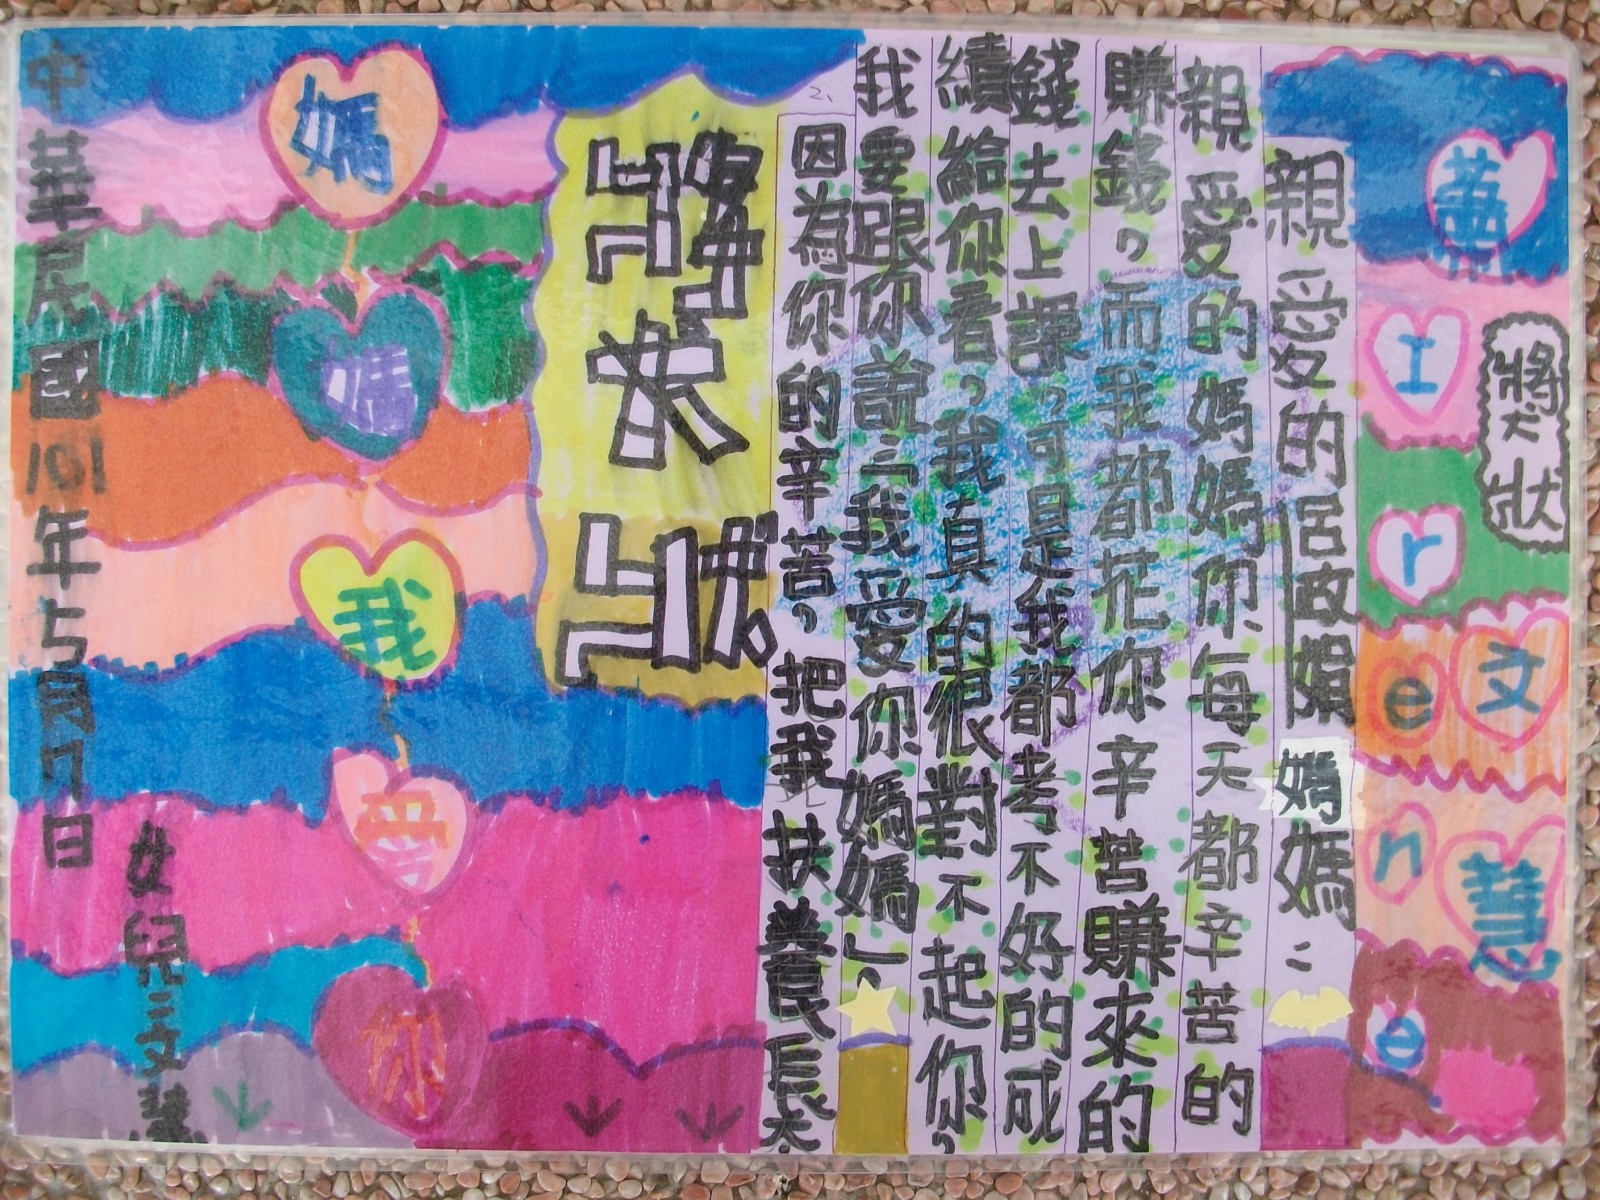 蕭文慧
Irene
獎狀
親愛的呂政娟媽媽:
親愛的媽媽你每天都辛苦的
賺錢,而我都花你辛苦賺來的
錢去上課,可是我都考不好的成
績給你看,我真的很對不起你,
我要跟你說:我愛你媽媽」,
2、因為你的辛苦,把我扶養長大
媽媽我愛你
女兒文慧
中華民國101年5月7日